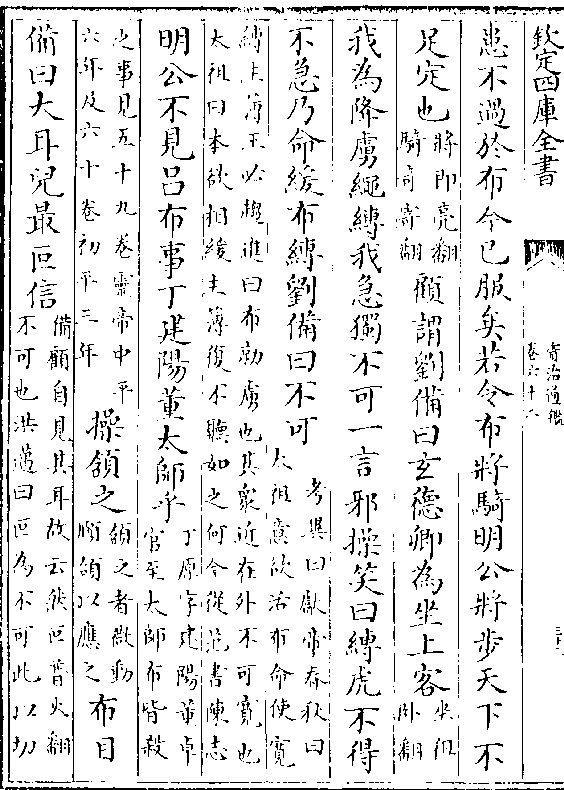 欽定四庫全書
資治通鑑
卷六十二
患不過於布今已服矣若令布將騎明公將步天下不
足定也將即亮翻騎奇寄翻顧謂劉備曰玄德卿為坐上客坐徂卧翻
我為降虜繩縛我急獨不可一言邪操笑曰縛虎不得
不急乃命緩布縛劉備曰不可考異曰獻帝春秋曰太祖意欲活布命使寬
縛主簿王必趨進曰布勍虜也其衆近在外不可寬也太祖曰本欲相緩主簿復不聽如之何今從范書陳志
明公不見呂布事丁建陽董太師乎丁原字建陽董卓官至太師布皆殺
之事見五十九卷靈帝中平六年及六十卷初平三年操頷之頷之者微動頤頷以應之布目
備曰大耳兒最叵信備顧自見其耳故云然叵普火翻不可也洪邁曰叵為不可此以切